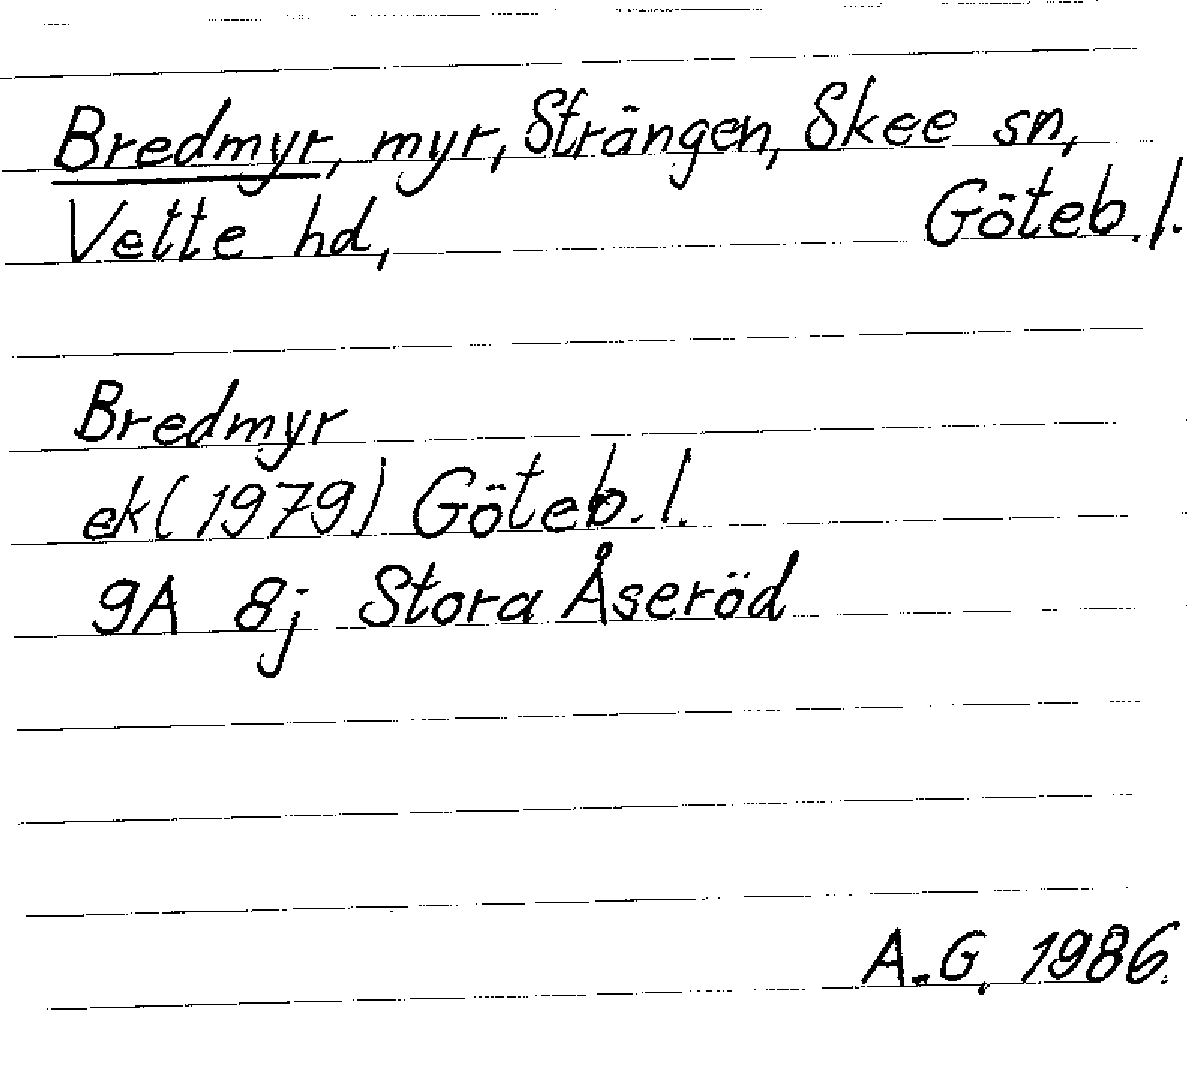 Bredmyr, myr, Strängen, Skee sn,
Vette hd, Göteb. l.
Bredmyr
ek (1979) Göteb. l.
9A 8j Stora Åseröd
A.G. 1986.